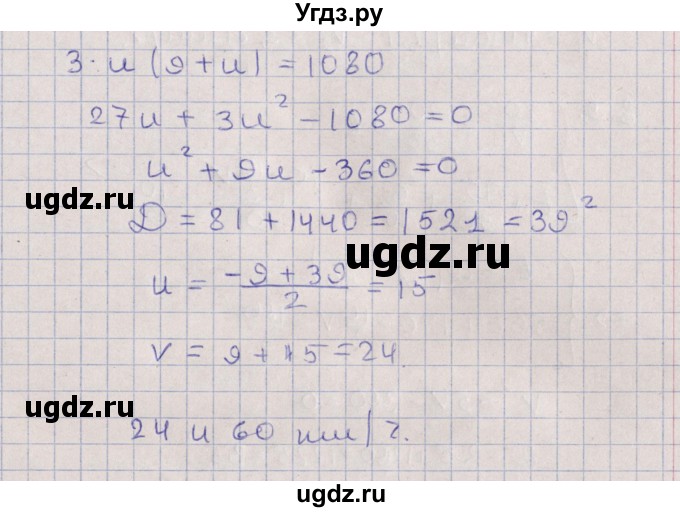 Угдз.ру
3·u(9+u)=1080
27u+3u²-1080=0
u²+9u-360=0
ugdz.ru
ugdz.ru
D=81+1440=1521=39²
ugdz.ru
u=(-9+39)/2=15
v=9+15=24
ugdz.ru
ugdz.ru
24 и 60 км/ч.
ugdz.ru